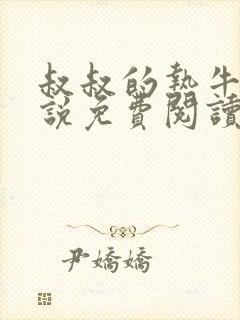 叔叔的執牛
說免費閱讀
尹嬌嬌